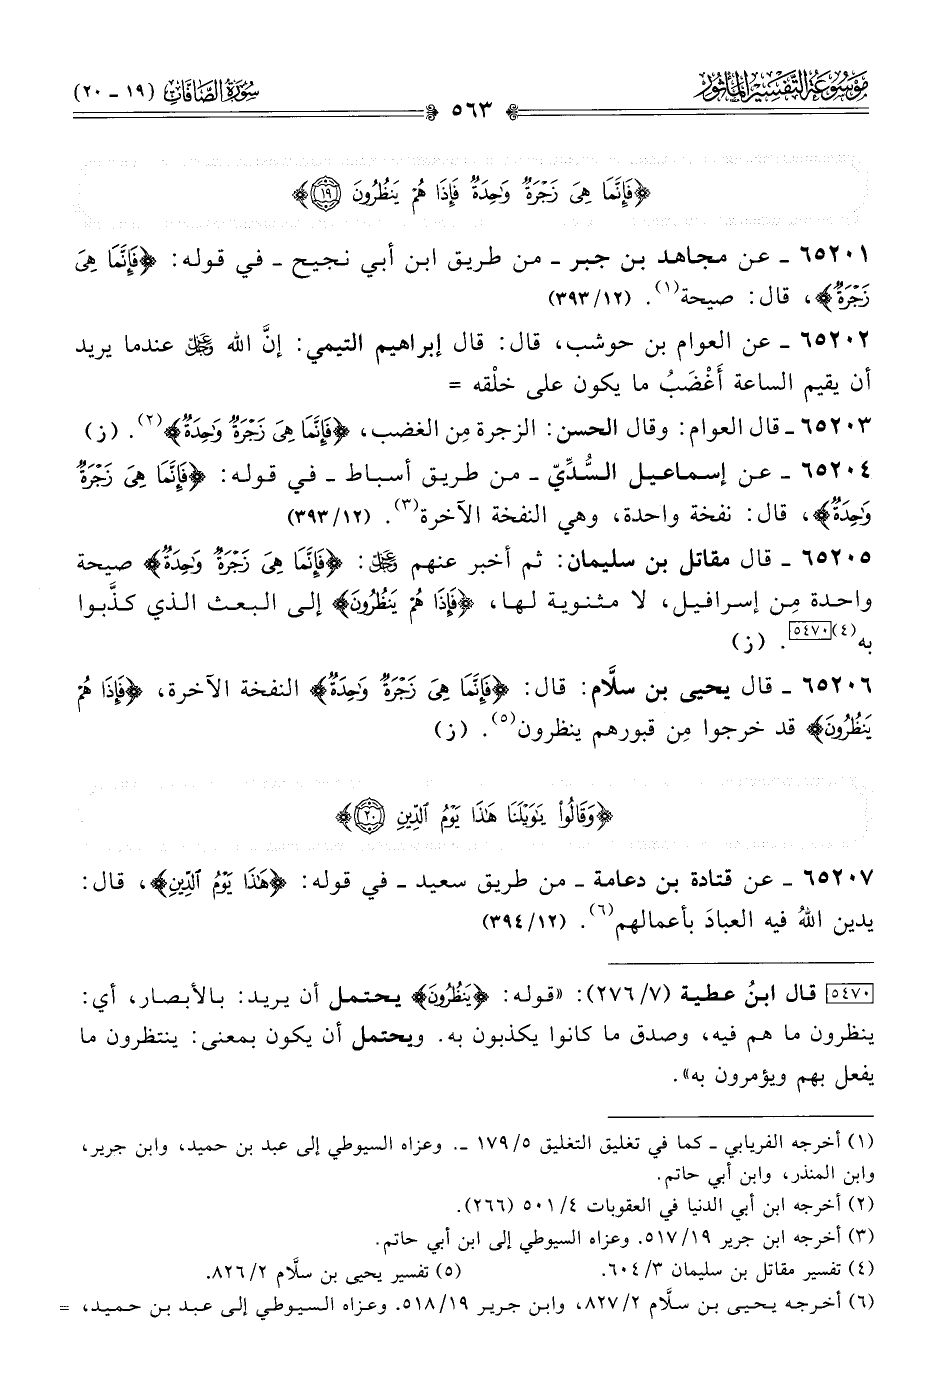 موسوعة التفسير المأثور
سورة الصافات (١٩ - ٢٠)
٥٦٣
﴿فَإِنَّمَا هِيَ زَجْرَةٌ وَٰحِدَةٌ فَإِذَا هُمْ يَنظُرُونَ ١٩﴾
٦٥٢٠١ ـ عن مجاهد بن جبر ـ من طريق ابن أبي نجيح ـ في قوله: ﴿فَإِنَّمَا هِيَ
زَجْرَةٌ﴾، قال: صيحة(١). (٣٩٣/١٢)
٦٥٢٠٢ ـ عن العوام بن حوشب، قال: قال إبراهيم التيمي: إنَّ الله عزوجل عندما يريد
أن يقيم الساعة أَغْضَبُ ما يكون على خلْقه =
٦٥٢٠٣ ـ قال العوام: وقال الحسن: الزجرة مِن الغضب، ﴿فَإِنَّمَا هِيَ زَجْرَةٌ وَٰحِدَةٌ﴾(٢). (ز)
٦٥٢٠٤ ـ عن إسماعيل السُّدِّيّ ـ من طريق أسباط ـ في قوله: ﴿فَإِنَّمَا هِيَ زَجْرَةٌ
وَٰحِدَةٌ﴾، قال: نفخة واحدة، وهي النفخة الآخرة(٣). (٣٩٣/١٢)
٦٥٢٠٥ ـ قال مقاتل بن سليمان: ثم أخبر عنهم عزوجل: ﴿فَإِنَّمَا هِيَ زَجْرَةٌ وَٰحِدَةٌ﴾ صيحة
واحدة مِن إسرافيل، لا مثنوية لها، ﴿فَإِذَا هُمْ يَنظُرُونَ﴾ إلى البعث الذي كذَّبوا
به(٤)[٥٤٧٠]. (ز)
٦٥٢٠٦ ـ قال يحيى بن سلَّام: قال: ﴿فَإِنَّمَا هِيَ زَجْرَةٌ وَٰحِدَةٌ﴾ النفخة الآخرة، ﴿فَإِذَا هُمْ
يَنظُرُونَ﴾ قد خرجوا مِن قبورهم ينظرون(٥). (ز)
﴿وَقَالُوا۟ يَٰوَيْلَنَا هَٰذَا يَوْمُ ٱلدِّينِ ٢٠﴾
٦٥٢٠٧ ـ عن قتادة بن دعامة ـ من طريق سعيد ـ في قوله: ﴿هَٰذَا يَوْمُ ٱلدِّينِ﴾، قال:
يدين اللهُ فيه العبادَ بأعمالهم(٦). (٣٩٤/١٢)
[٥٤٧٠] قال ابنُ عطية (٢٧٦/٧): «قوله: ﴿يَنظُرُونَ﴾ يحتمل أن يريد: بالأبصار، أي:
ينظرون ما هم فيه، وصدق ما كانوا يكذبون به. ويحتمل أن يكون بمعنى: ينتظرون ما
يفعل بهم ويؤمرون به».
(١) أخرجه الفريابي ـ كما في تغليق التغليق ١٧٩/٥ ـ. وعزاه السيوطي إلى عبد بن حميد، وابن جرير،
وابن المنذر، وابن أبي حاتم.
(٢) أخرجه ابن أبي الدنيا في العقوبات ٥٠١/٤ (٢٦٦).
(٣) أخرجه ابن جرير ٥١٧/١٩. وعزاه السيوطي إلى ابن أبي حاتم.
(٤) تفسير مقاتل بن سليمان ٦٠٤/٣. (٥) تفسير يحيى بن سلَّام ٨٢٦/٢.
(٦) أخرجه يحيى بن سلَّام ٨٢٧/٢، وابن جرير ٥١٨/١٩. وعزاه السيوطي إلى عبد بن حميد، =